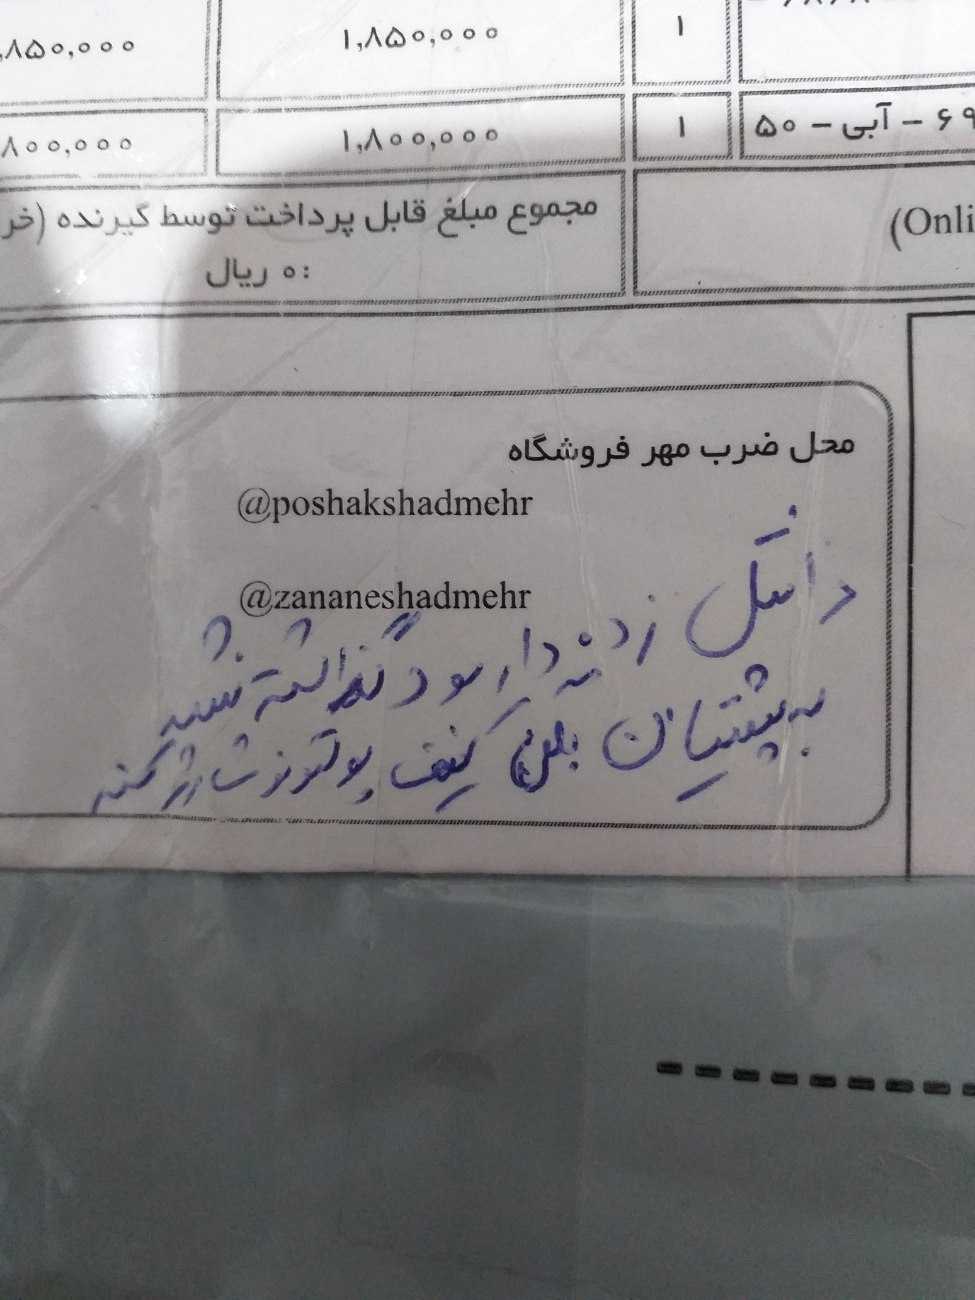 ۱ ۱,۸۵۰,۰۰۰ ,۸۵۰,۰۰۰
۶۹ - آبی - ۵۰ ۱ ۱,۸۰۰,۰۰۰ ۸۰۰,۰۰۰
(Onli
مجموع مبلغ قابل پرداخت توسط گیرنده (خر
: ۰ ریال
محل ضرب مهر فروشگاه
@poshakshadmehr
@zananeshadmehr
زدنه دار بود گذاشته نشد
به پشتیبان بگین کیف پولتونو شارژ کنه